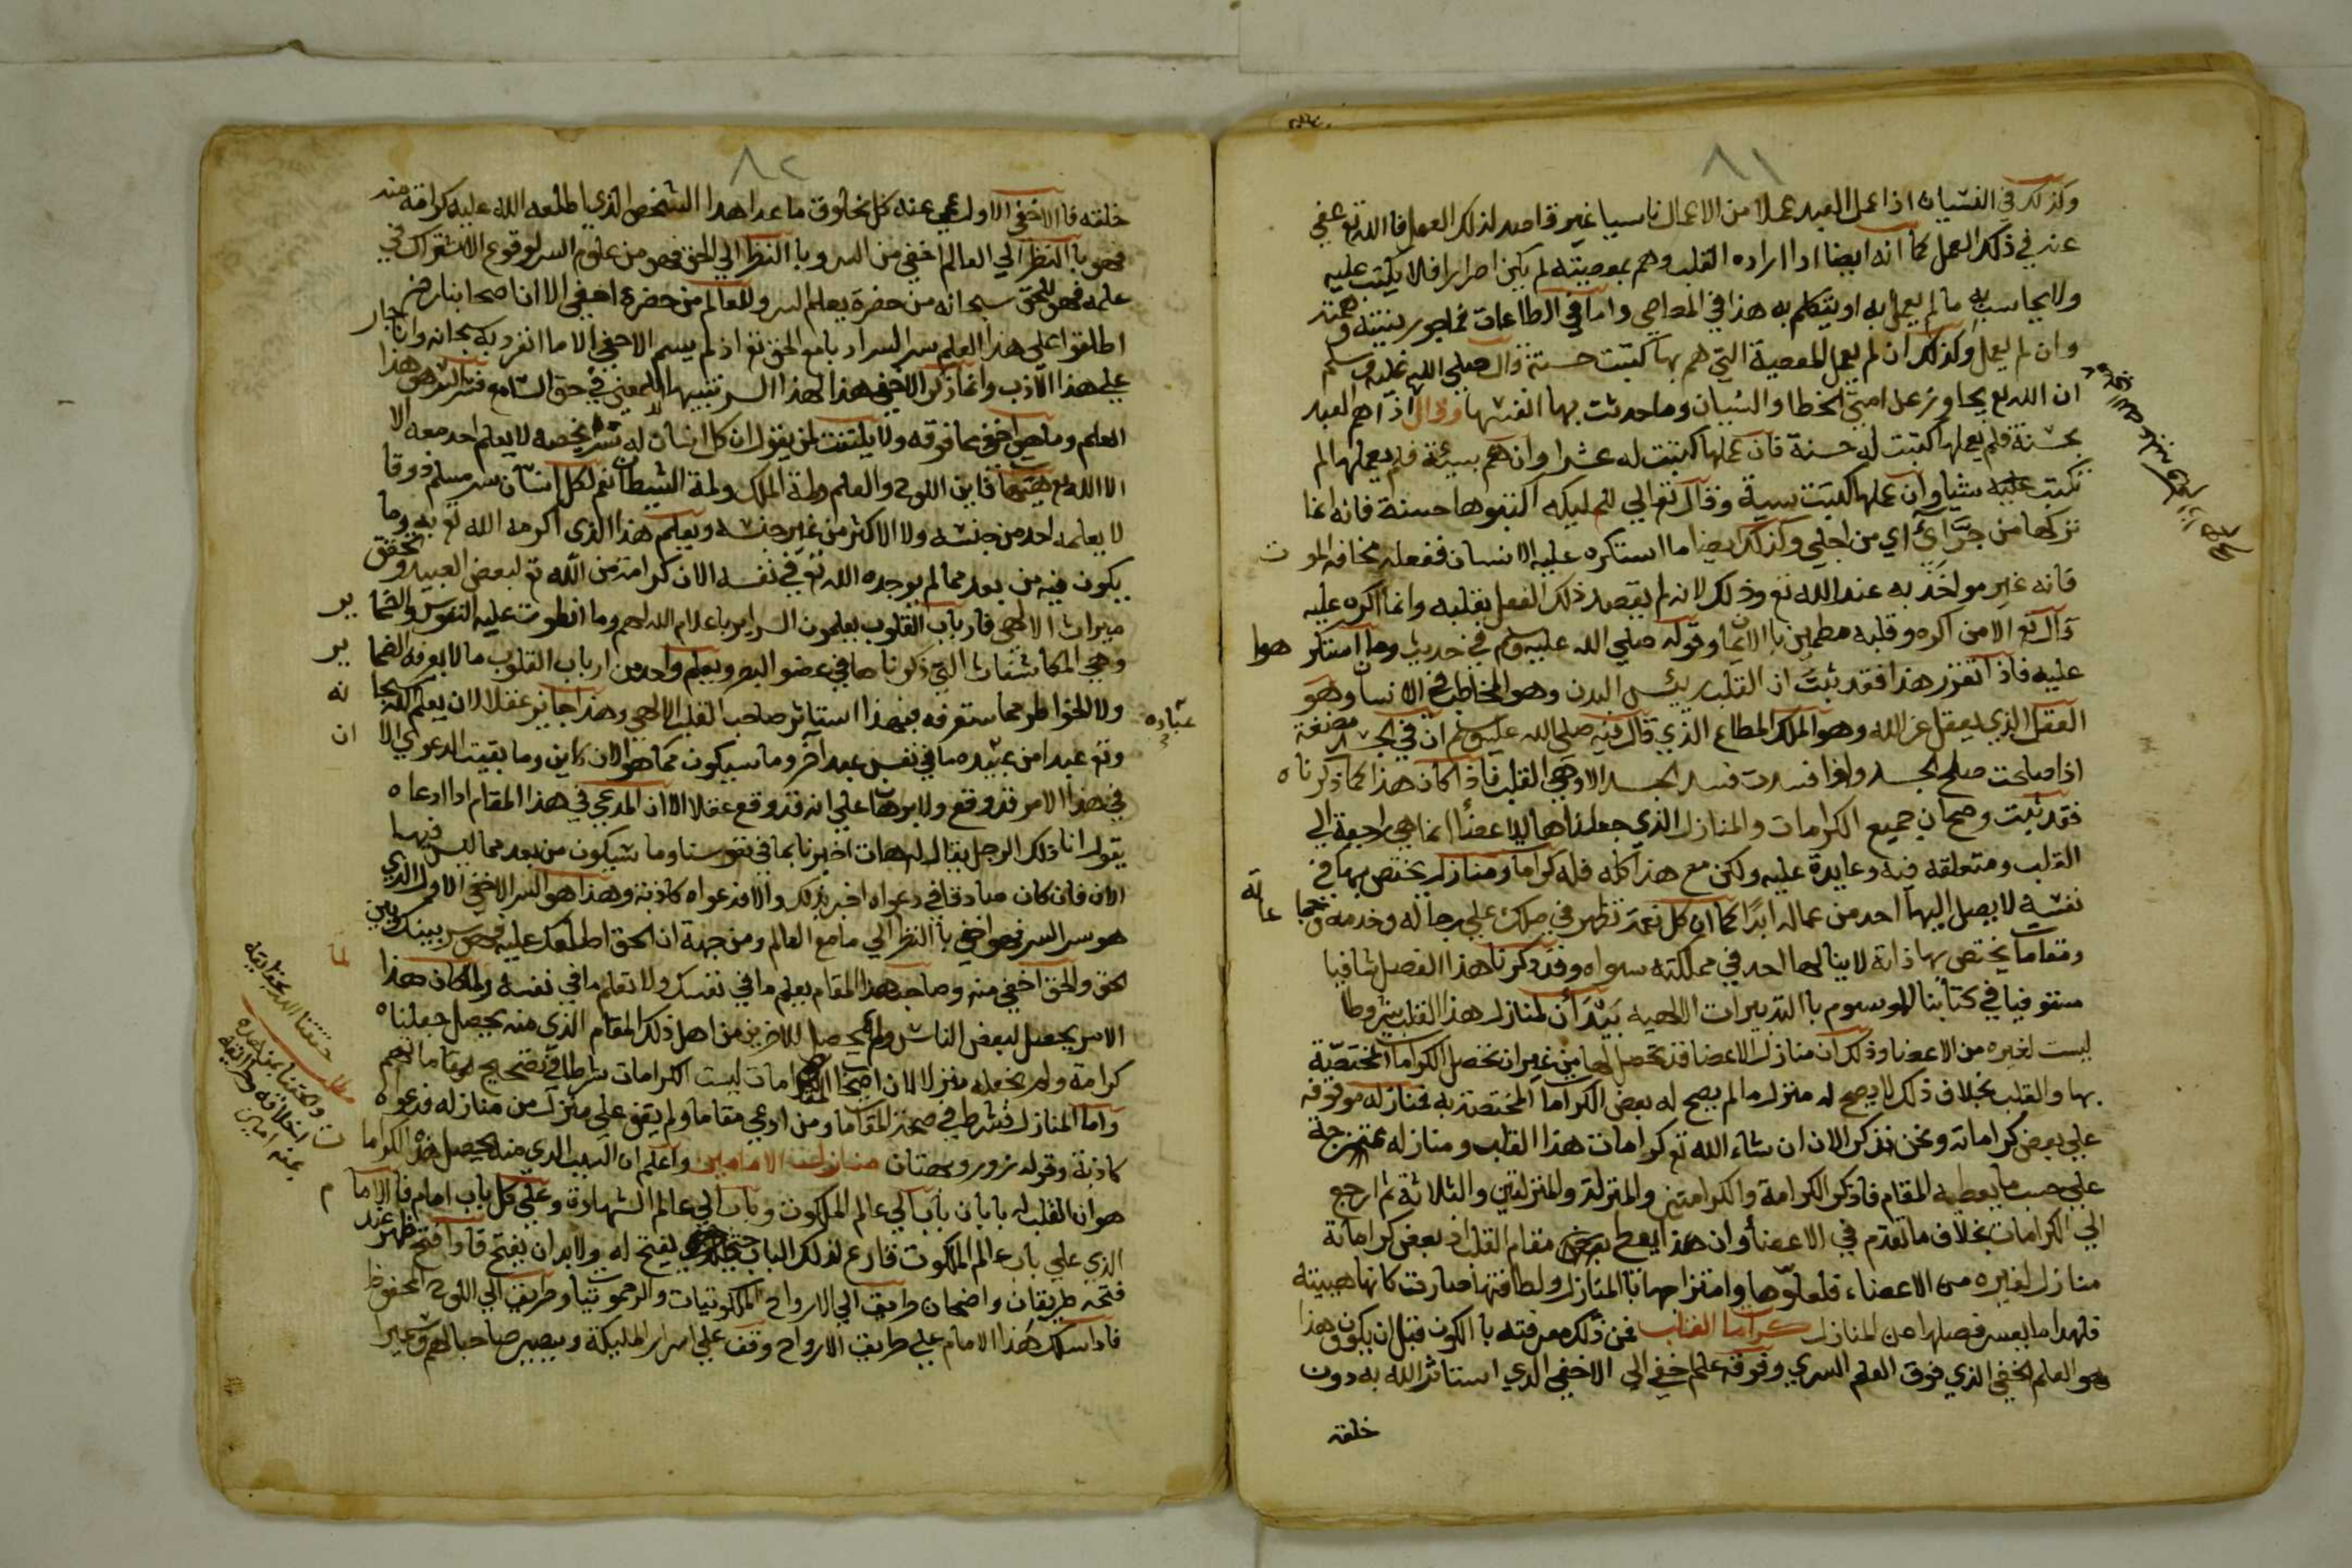 ٨١
وكذلك في النسيان اذا عمل العبد عملا من الاعمال ناسيا غير قاصد لذلك العمل فان الله تع عفي
عنه في ذلك العمل كما انه ايضا اذا اراده القلب وهم بمعصيته لم يكن اصرارا فلا يكتب عليه
ولا يحاسب به ما لم يعمل به او يتكلم به هذا في المعاصي واما في الطاعات فماجور بنيته وهمته
وان لم يعمل وكذلك ان لم يعمل المعصية التي هم بها كتبت حسنة قال صلي الله عليه وسلم
ان الله تع تجاوز عن امتي الخطا والنسيان وما حدثت بها انفسها وقال اذا هم العبد
بحسنة فلم يعملها كتبت له حسنة فان عملها كتبت له عشرا وان هم بسيئة فلم يعملها لم
تكتب عليه شيا وان عملها كتبت سيية وقال تعالي للمليكه اكتبوها حسنة فانه انما
تركها من جرّاي اي من اجلي وكذلك ايضا ما استكره عليه الانسان ففعله مخافه الموت
فانه غير مواخذ به عند الله تع وذلك لانه لم يقصد ذلك الفعل بقلبه وانما اكره عليه
قال تع الا من اكره وقلبه مطمين بالايمان وقوله صلي الله عليه وسلم في حديث وما استكرهوا
عليه فاذا تقرر هذا فقد ثبت ان القلب رييس البدن وهو المخاطب في الانسان وهو
العقل الذي يعقل عن الله وهو الملك المطاع الذي قال فيه صلي الله عليه وسلم ان في الجسد مضغة
اذا صلحت صلح الجسد واذا فسدت فسد الجسد الا وهي القلب فاذا كان هذا كما ذكرناه
فقد ثبت وصح ان جميع الكرامات والمنازل الذي جعلناها للاعضأ انما هي راجعة الي
القلب ومتعلقه فيه وعايدة عليه ولكن مع هذا كله فله كرامات ومنازل يختص بها في
نفسه لا يصل اليها احد من عماله ابدا كما ان كل نعمة تظهر في ملك علي رجاله وخدمه
ومقامات يختص بها ذاته لا ينالها احد في مملكته سواه وقد ذكرنا هذا الفصل شافيا
مستوفيا في كتابنا الموسوم بالتدبيرات اللهية بيد أن لمنازل هذا القلب شروطا
ليست لغيره من الاعضا وذلك ان منازل الاعضا قد تحصل لها من غير ان تحصل الكرامات المختصة
بها والقلب بخلاف ذلك لا يصح له منزل ما لم يصح له بعض الكرامات المختصة به فمنازله موقوفه
علي بعض كراماته ونحن نذكر الان ان شاء الله تع كرامات هذا القلب ومنازله ممتزجة
علي حسب ما يعطيه المقام فاذكر الكرامة والكرامتين والمنزلة والمنزلتين والثلاثة ثم ارجع
الي الكرامات بخلاف ما تقدم في الاعضأ وان هذا يعطي مقام القلب اذ بعض كراماته
منازل لغيره من الاعضاء فلعلوّها وامتزاجها بالمنازل ولطافتها صارت كانها هيبته
فلهذا ما يعسر فصلها من المنازل كرامات القلب فمن ذلك معرفته بالكون قبل ان يكون وهذا
هو العلم الخفي الذي فوق العلم السري وفوقه علم خفي الي الاخفي الذي استاثر الله به دون
خلقه
٨٢
خلقه فالاخفي الاول عمي عنه كل مخلوق ما عدا هذا الشخص الذي اطلعه الله عليه كرامة منه
فهو بالنظر الي العالم اخفي من السر وبالنظر الي الحق فهو من علوم السر لوقوع الاشتراك في
علمه فهو للحق سبحانه من حضرة يعلم السر وللعالم من حضرة اخفي الا ان اصحابنا رض
اطلقوا علي هذا العلم سر السر ادبا مع الحق تع اذ لم يسم الاخفي الا ما انفرد به سبحانه وانا جار
علي هذا الادب وانما ذكر الاخفي هذا لهذا السر تنبيها للمعني في حق السامع وسر السر هو هذا
العلم وما هو اخفي مما فوقه ولا يلتفت لمن يقول ان كل انسان له سر يخصه لا يعلم احد معه الا
الا الله تع فاين اللوح والعلم ولمة الملك ولمة الشيطان نعم لكل انسان سر مسلم ذوقا
لا يعلمه احد من جنسه ولا الاكثر من غير جنسه ويعلم هذا الذي اكرمه الله تع به وما
يكون فيه من بعد مما لم يوجده الله تع في نفسه الان كرامة من الله تع لبعض العبيد وتحقق
ميراث الالهي فارباب القلوب يعلمون السراير باعلام الله لهم وما انطوت عليه النفوس والضماير
وهي المكاشفات التي ذكرناها في عضو البصر ويعلم واحد من ارباب القلوب ما لا يعرفه الضماير
ولا الخواطر مما ستعرفه فبهذا استاثر صاحب القلب الالهي وهذا جايز عقلا لان يعلم الله سبحانه
عباده
وتع عبدا من عبيده ما في نفس عبد آخر وما سيكون كما هو الان كاين وما بقيت الدعوي الا ان
في هذا الامر قد وقع ولا برهان علي انه قد وقع عقلا الا ان المدعي في هذا المقام اذا ادعاه
يقول انا ذلك الرجل يقال له هات اخبرنا بما في نفوسنا وما سيكون من بعد مما ليس فيها
الان فان كان صادقا في دعواه اخبر بذلك والا فدعواه كاذبة وهذا هو السر الاخفي الاول الذي
هو سر السر فهو اخفي بالنظر الي ما مع العالم ومن جهة ان الحق اطلعك عليه فهو سر بينك وبين
الحق والحق اخفي منه وصاحب هذا المقام يعلم ما في نفسك ولا تعلم ما في نفسه ولما كان هذا
الامر يحصل لبعض الناس ولم يحصل للاخرين من اهل ذلك المقام الذي منه يحصل جعلناه
كرامة ولم نجعله منزلا لان اصحاب المقامات ليست الكرامات شرطا في تصحيح مقاماتهم
واما المنازل فشرط في صحة المقامات ومن ادعي مقاما ولم يقف علي منزل من منازله فدعواه
كاذبة وقوله زور وبهتان منازلت الامامين واعلم ان السبب الذي منه يحصل هذه الكرامات
هو ان القلب له بابان باب الي عالم الملكوت وباب الي عالم الشهادة وعلي كل باب امام فالامام
الذي علي باب عالم الملكوت قارع لذلك الباب حتي يفتح له ولا بد ان يفتح فاذا فتح ظهر عند
فتحه طريقان واضحان طريق الي الارواح الملكوتيات والرحموتيات وطريق الي اللوح المحفوظ
فاذا سلك هذا الامام علي طريق الارواح وقف علي اسرار المليكة ويصير صاحبا لهم وسميرا
حققنا الله بحقايقه
ومتعنا بمشاهدة
اخلاقه
بمنه امين